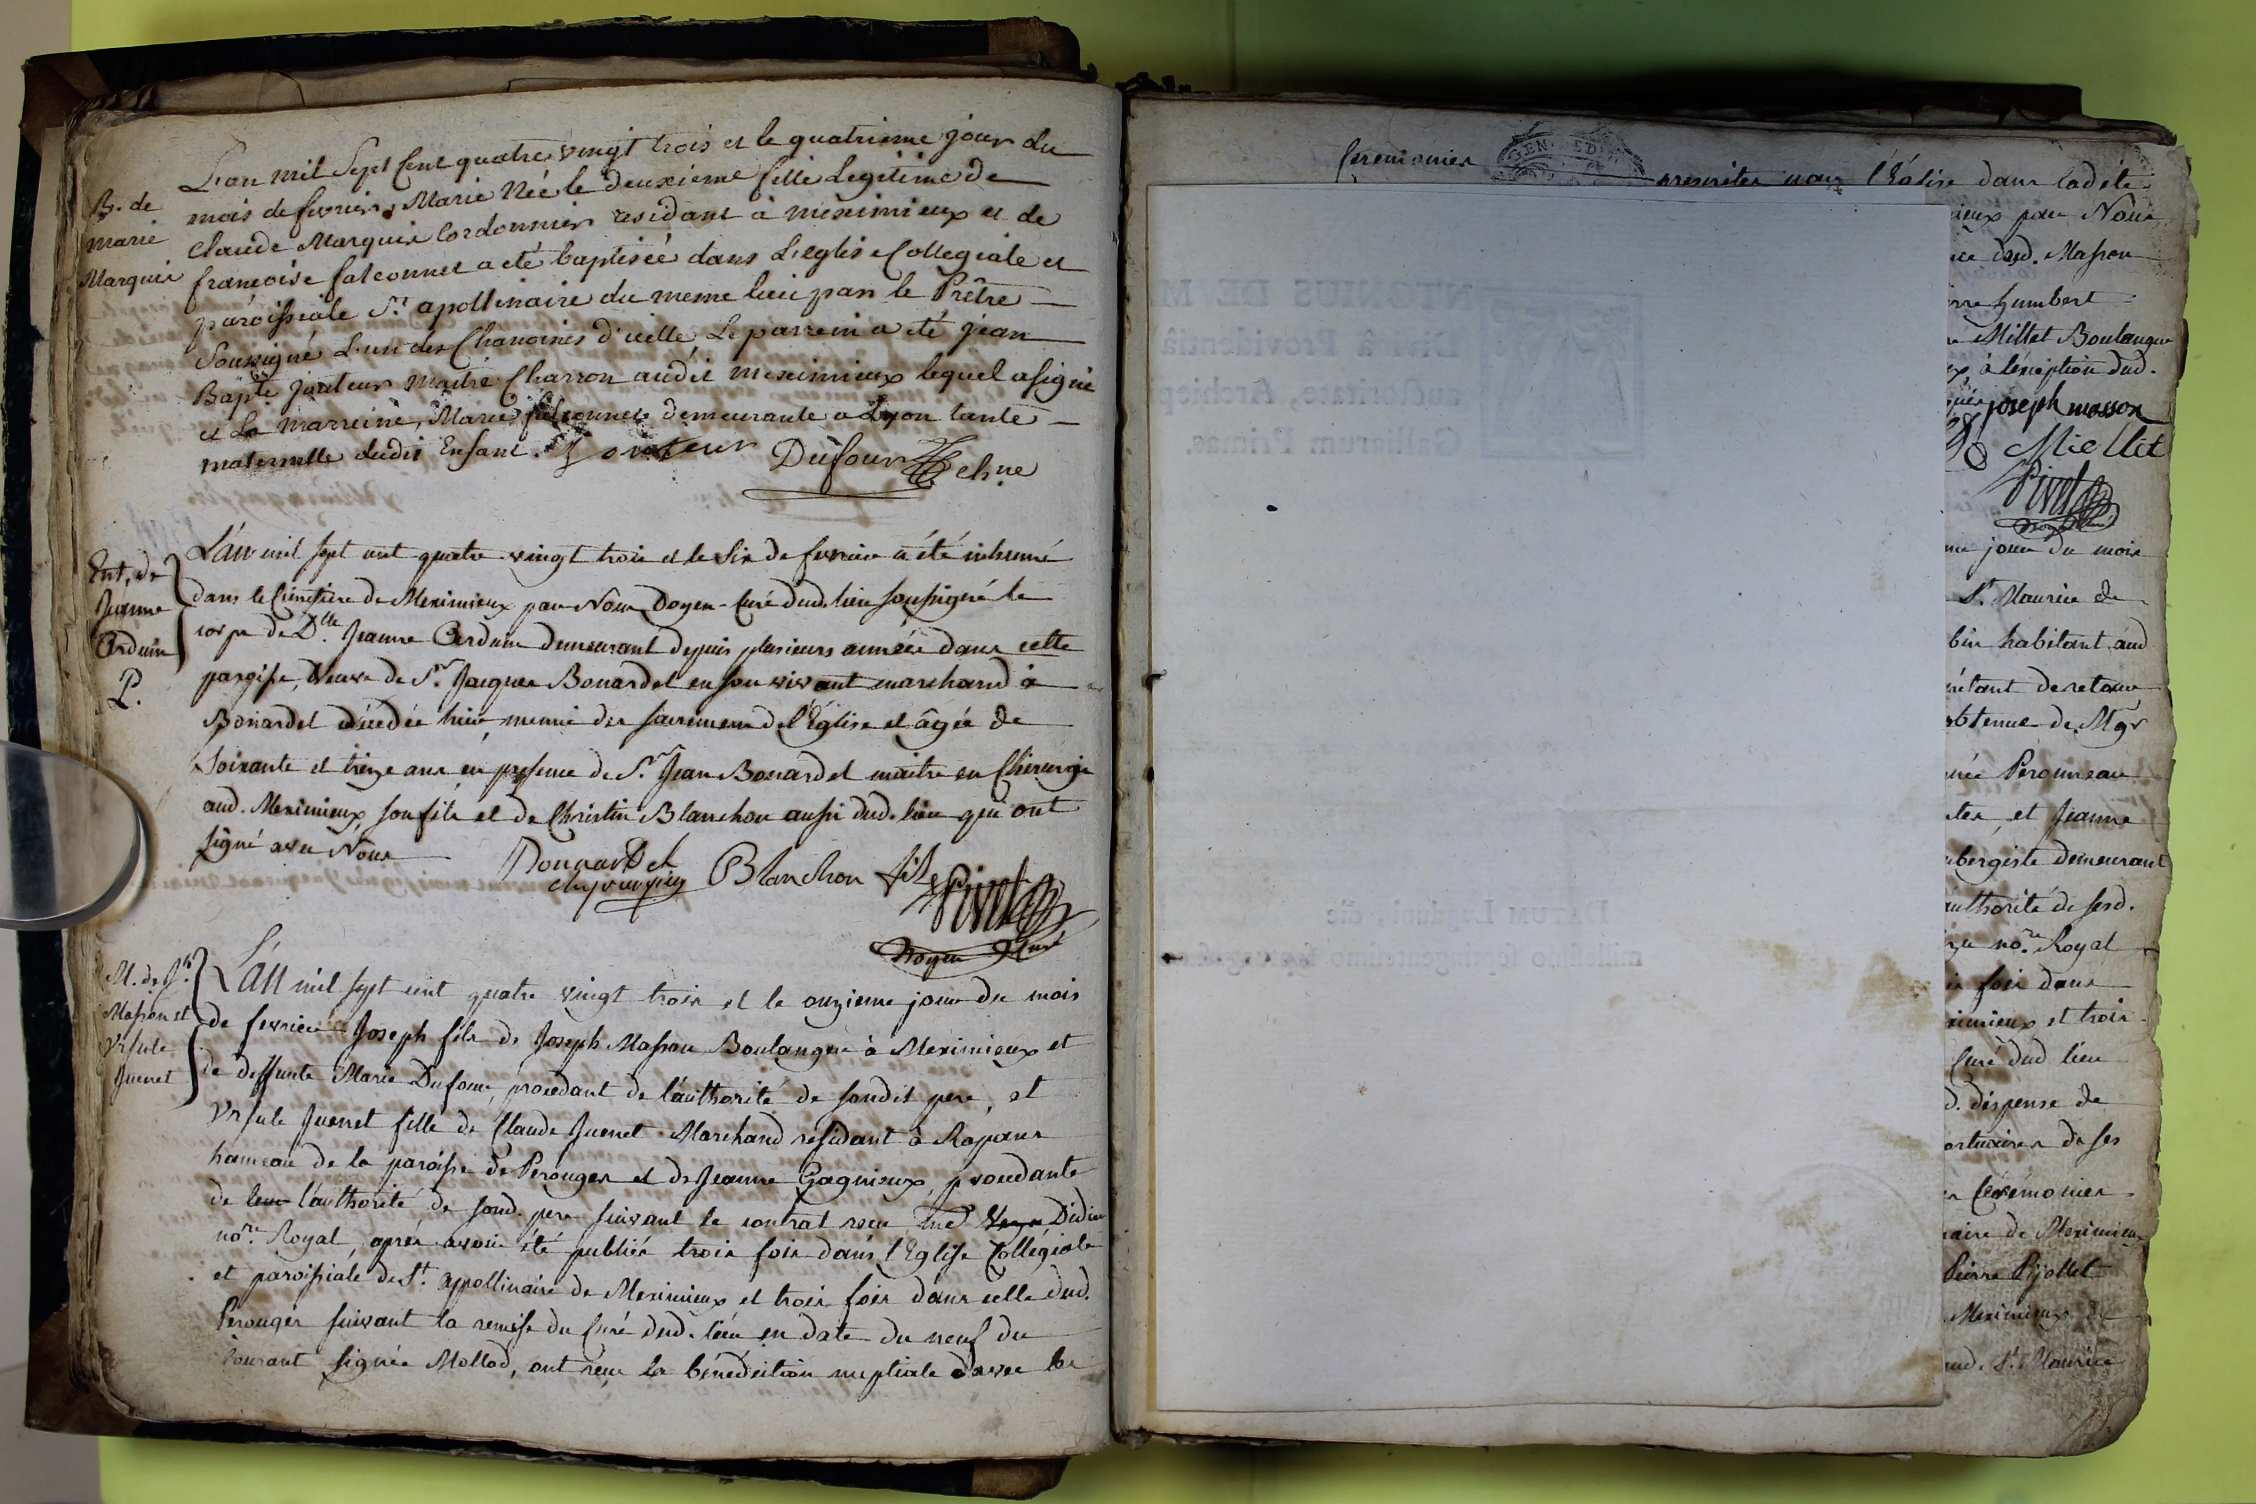 L'an mil Sept Cent quatre vingt trois et le quatrieme jour du
B. de
marie
Marquis
mois de fevrier, Marie Née le deuxieme fille Legitime de
claude Marquis Cordonnier residant à meximieux et de
francoise falconnet a eté baptisée dans L'eglise Collegiale et
paroissiale St. apollinaire du meme lieu par le Prêtre
Soussigné L'un des Chanoines d'icelle Le parrein a eté jean
Bapte jouteur maitre Charron audit meximieux lequel a signé
et La marreine, Marie falconnet demeurante a Lyon tante
maternelle dudit Enfant. Jouteur Dufour chne
Ent. de
Jeanne
Orduin
P.
L'an mil sept cent quatre vingt trois et le Six de fevrier a été inhumé
dans le Cimetiere de Meximieux par Nous Doyen-Curé dud. lieu soussigné le
corps de Dlle Jeanne Orduin demeurant depuis plusieurs années dans cette
paroisse, Veuve de Sr. Jacques Bonardel en son vivant marchand à
Bonardel décédée hier, munie des sacremens de l'Eglise et âgée de
Soixante et treize ans en presence de Sr. Jean Bonardel maitre en Chirurgie
aud. Meximieux, son fils et de Christin Blanchon aussi dud. lieu qui ont
signé avec Nous
Bonnardel Blanchon fils
Pivet
Doyen Curé
M. de Jh.
Masson et
Ursule
Juenet
L'an mil sept cent quatre vingt trois et le onzieme jour du mois
de fevrier Joseph fils de Joseph Masson Boulanger à Meximieux et
de deffunte Marie Dufour, procedant de l'authorité de sondit pere, et
Ursule Juenet fille de Claude Juenet Marchand residant à Rapans
hameau de la paroisse de Perouges et de Jeanne Gagnieux, procedante
de leur l'authorité de sond. pere suivant le contrat recu Me
nore. Royal, après avoir été publiés trois fois dans l'Eglise Collégiale
et paroissiale de St. appollinaire de Meximieux et trois fois dans celle dud.
Perouges suivant la remise du Curé dud. lieu en date du neuf du
courant signée Mollod, ont reçu la bénédiction nuptiale avec les
Ceremonies prescrites par l'Eglise dans ladite
ieux par Nous
ce dud. Masson
rre humbert
Millet Boulanger
x à l'exception dud.
joseph masson
Miellet
Pivet
me jour du mois
St. Maurice de
bin habitant aud
étant de retour
btenue de Mgr
née Peronneau
tes, et Jeanne
ubergiste demeurant
authorité de sesd.
nore. Royal
fois dans
ximieux et trois
Curé dud lieu
d. dispense de
ortuaires de ses
Cérémonies
naire de Meximieux
Pierre Pijollet
Meximieux de
aud. St. Maurice